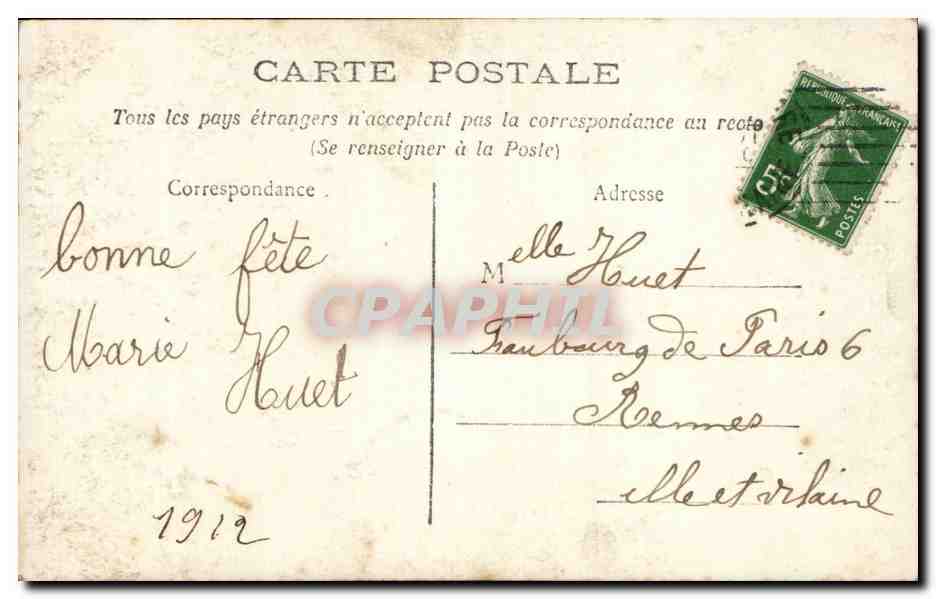 CARTE POSTALE
Tous les pays étrangers n'acceptent pas la correspondance au recto
(Se renseigner à la Poste)
Correspondance.
Adresse
bonne fête
Marie Huet
1912
Melle Huet
Faubourg de Paris 6
Rennes
ille et vilaine
REPUBLIQUE FRANÇAISE
5c
POSTES
CPAPHIL